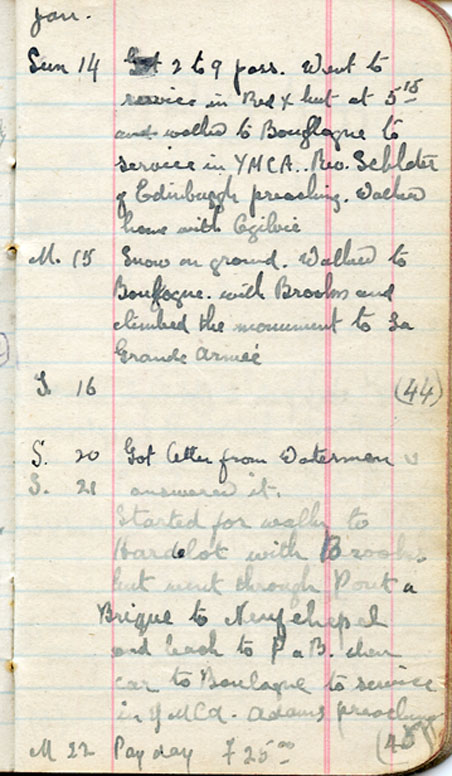 Jan.
Sun 14 Got 2 to 9 pass. Went to
service in Red X hut at 5 15
and walked to Bouglogne to
service in YMCA.. Rev.
of Edinburgh preaching. Walked
home with Ogilvie
M. 15 Snow on ground. Walked to
Boulogne. with Brooks and
climbed the monument to La
Grande Armée
T. 16 (44)
S. 20 Got letter from Waterman
S. 21 answered it.
Started for walk to
Hardelot with Brooks
but went through Pont a
Brique to Neufchepel
and back to P a B. then
car to Boulogne to service
in YMCA. Adams preaching
M 22 Pay day £25 00 (45)